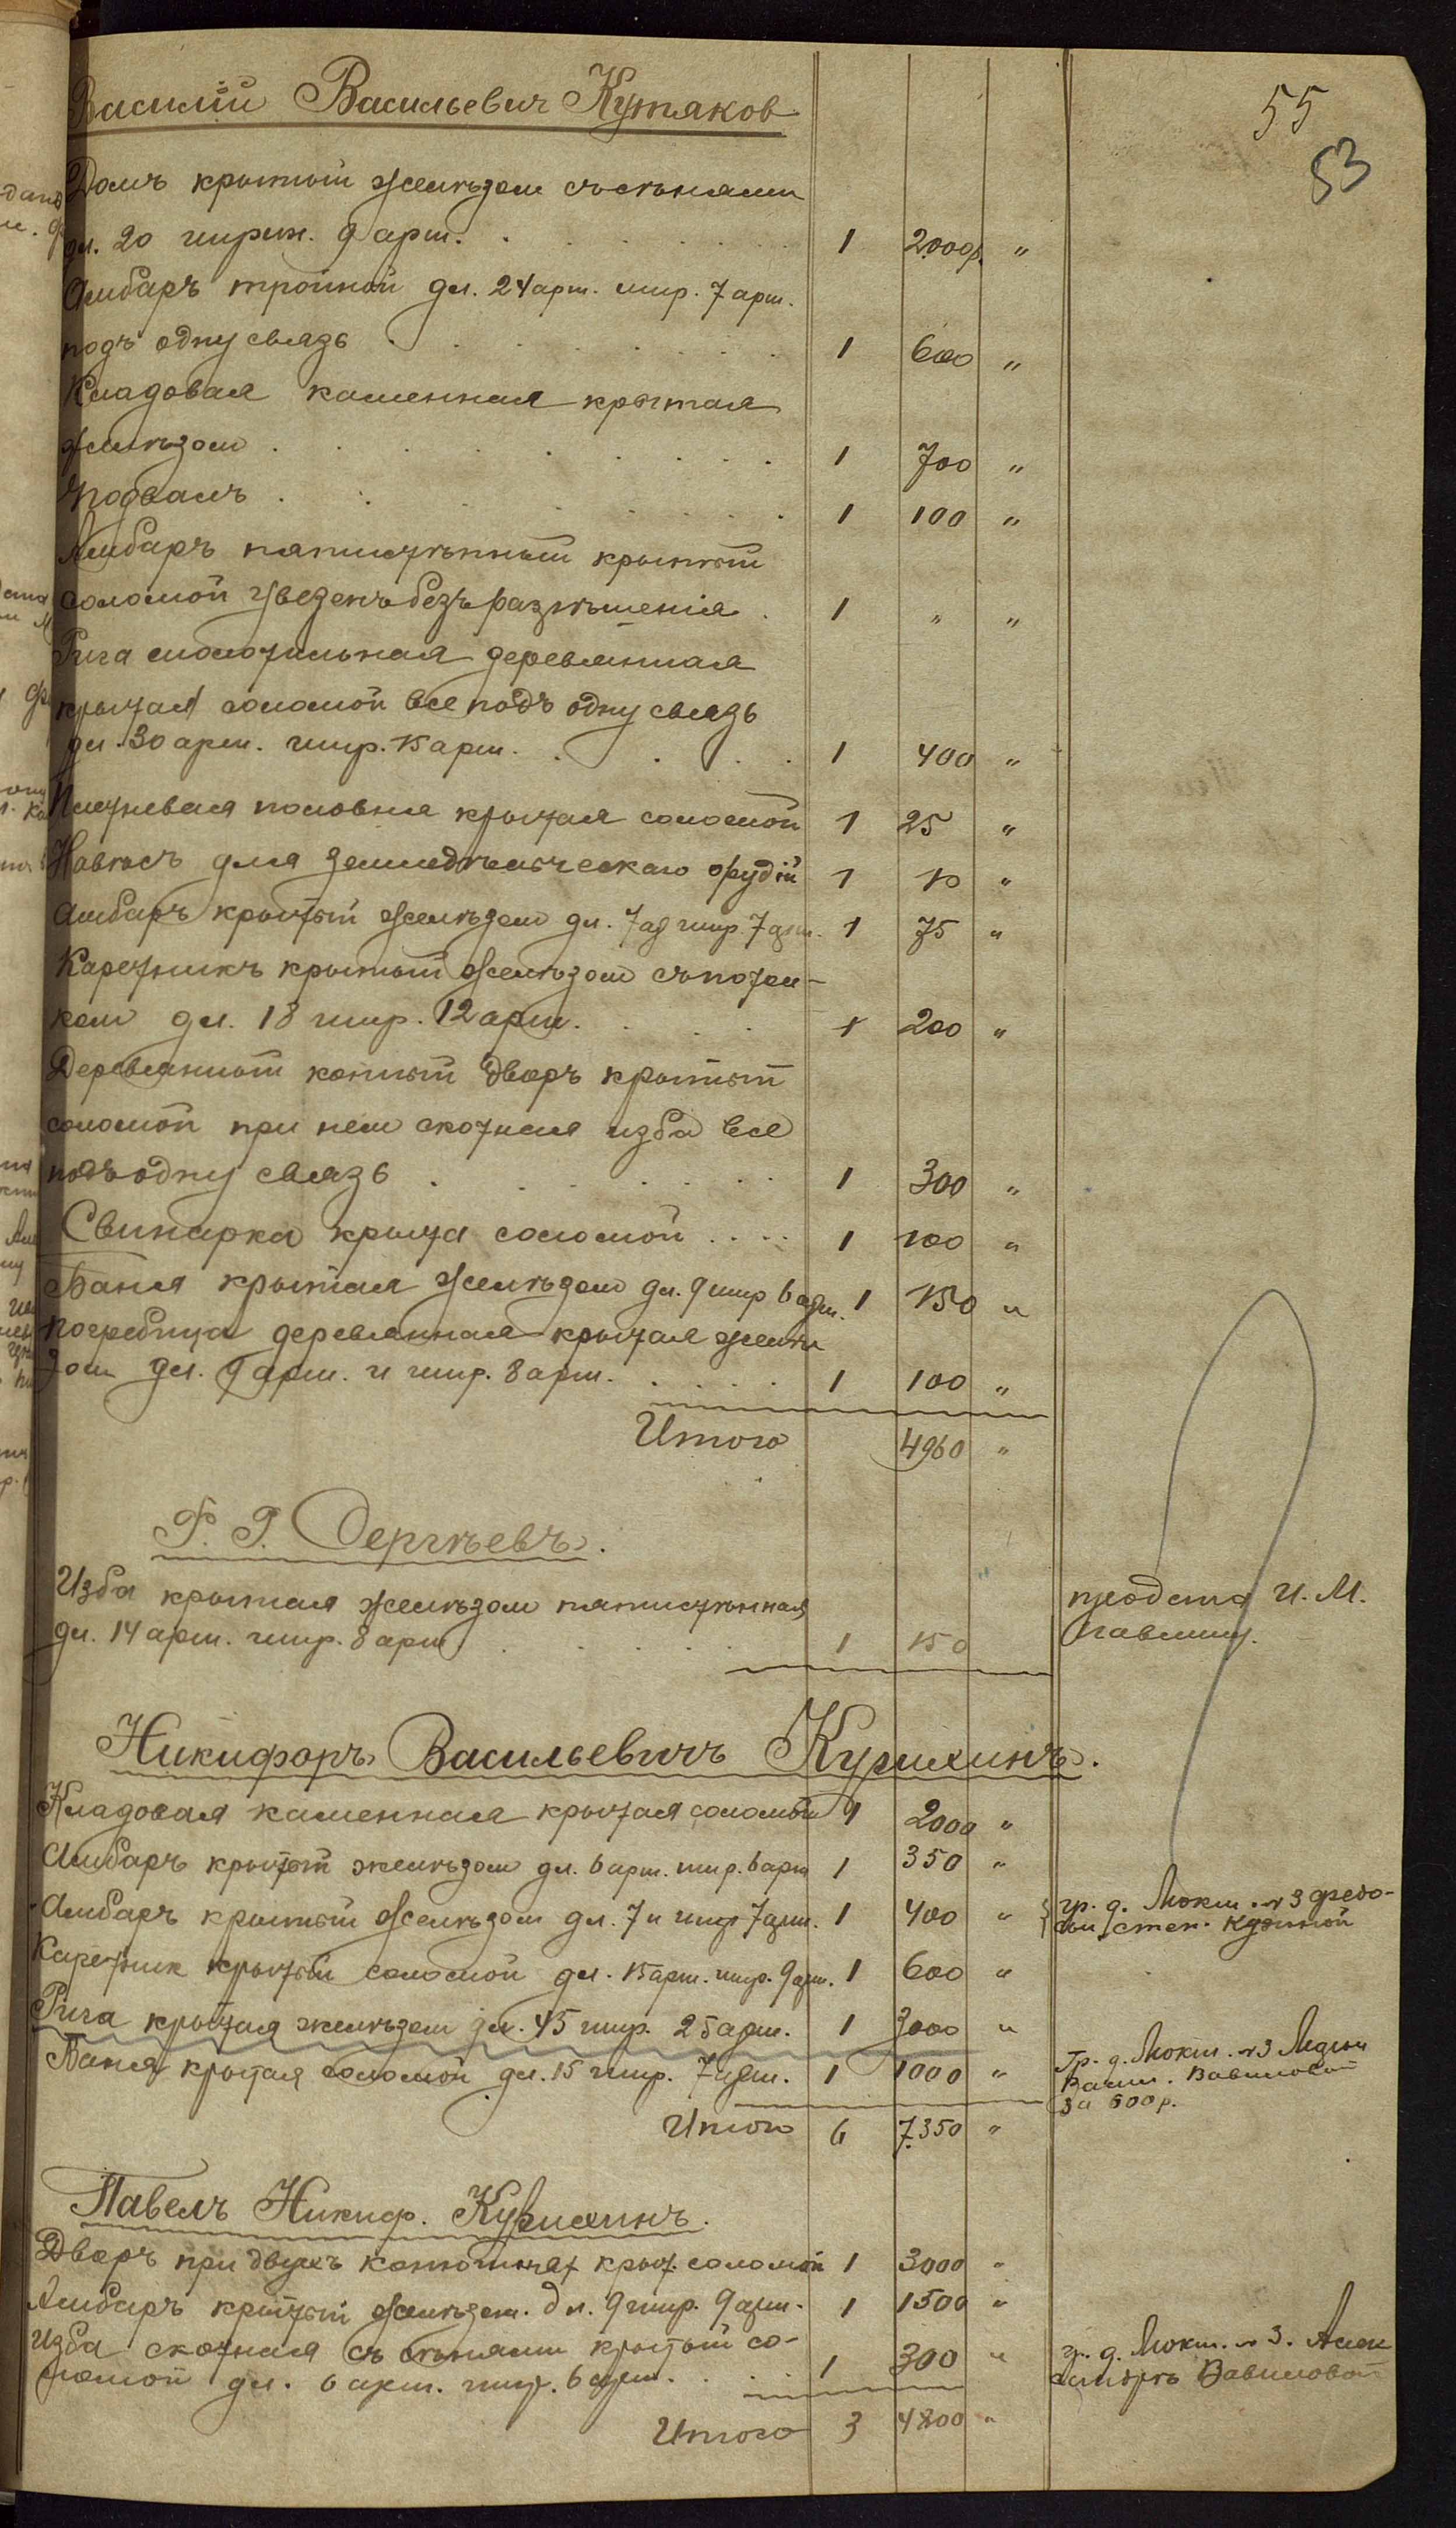 55
53
Василий Васильевич Кутяков
Домъ крытый желѣзом съ сѣнями
дл. 20 ширин. 9 арш. 1 2000р. "
Амбаръ тройной дл. 24 арш. шир. 7 арш.
подъ одну связь 1 600 "
Кладовая каменная крытая
желѣзом 1 700 "
Подвалъ 1 100 "
Амбаръ пятистѣнный крытый
соломой увезенъ безъ разрѣшенія 1 " "
Рига молотильная деревянная
крытая соломой все подъ одну связь
дл. 30 арш. шир. 15 арш. 1 400 "
Плетневая половня крытая соломой 1 25 "
Навѣсъ для земледѣльческаго орудій 1 10 "
Амбаръ крытый желѣзом дл. 7 ар шир. 7 арш. 1 75 "
Каретникъ крытый желѣзом съ потол-
ком дл. 18 шир. 12 арш. 1 200 "
Деревянный конный дворъ крытый
соломой при нем скотная изба все
подъ одну связь 1 300 "
Свинарка крыта соломой .... 1 100 "
Баня крытая желѣзом дл. 9 шир 6 арш. 1 150 "
Погребица деревянная крытая желѣ
зом дл. 9 арш. и шир. 8 арш. 1 100 "
Итого 4960 "
Сергѣевъ.
Изба крытая желѣзом пятистѣнная
дл. 14 арш. шир. 8 арш 1 150
И. М.
Никифоръ Васильевичъ Курихинъ.
Кладовая каменная крытая соломой 1 2000 "
Амбаръ крытый желѣзом дл. 6 арш. шир. 6 арш 1 350 "
Амбаръ крытый желѣзом дл. 7 и шир 7 арш. 1 400 " гр. д. Локш.
степ.
Каретник крытый соломой дл. 15 арш. шир. 9 арш. 1 600 "
Рига крытая желѣзом дл. 45 шир. 25 арш. 1 3000 "
Баня крытая соломой дл. 15 шир. 7 арш. 1 1000 " Гр. д. Локш.
Вавиловой
за 500 р.
Итого 6 7.350 "
Павелъ Никиф. Курихинъ.
Дворъ при двухъ конюшнях крыт. соломой 1 3000 "
Амбаръ крытый желѣзом. дл. 9 шир. 9 арш. 1 1500 "
Изба скотная съ сѣнями крытый со-
ломой дл. 6 арш. шир. 6 арш. 1 300 " гр. д. Локш.
Вавиловой
Итого 3 4800 "